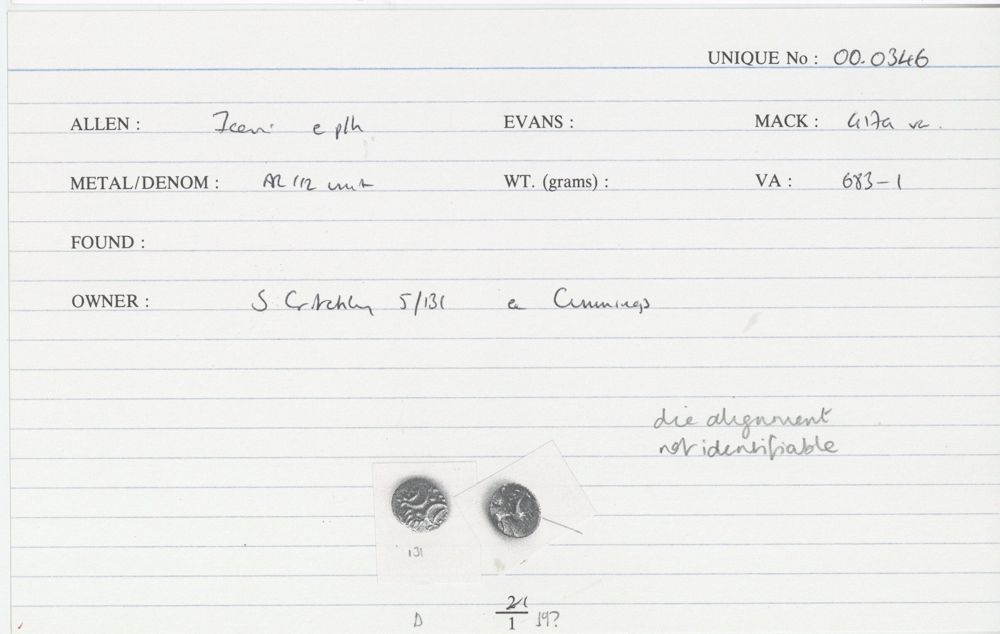 UNIQUE No : 00.0346
ALLEN : Iceni e p/h EVANS : MACK : 417a var.
METAL/DENOM : AR 1/2 unit WT. (grams) : VA : 683-1
FOUND :
OWNER : S Critchley 5/131 ex Cummings
die alignment
not identifiable
131
D 1 19?